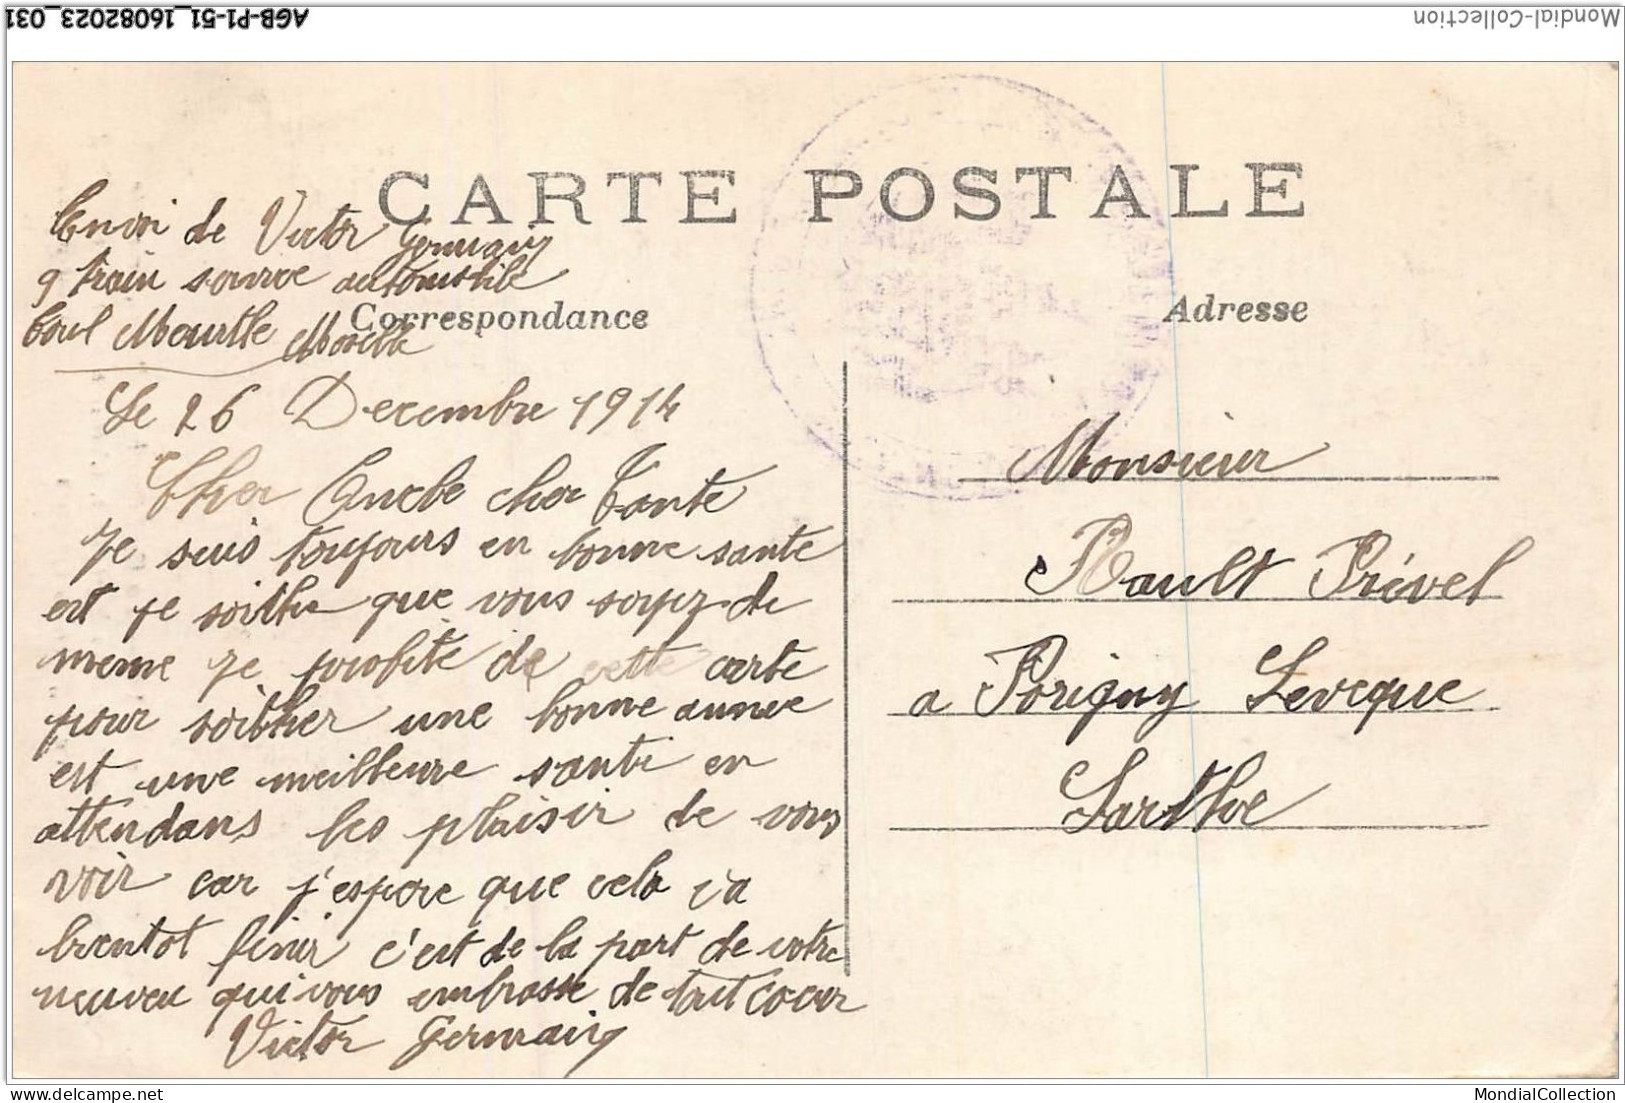 AGB-P1-51_16082023_031
Mondial-Collection
CARTE POSTALE
Envoi de Victor Germain
9 train service automobile
Toul Meurthe Moselle
Correspondance
Le 26 Decembre 1914
Cher Oncle cher Tante
Je suis toujours en bonne sante
est je soithe que vous soyez de
meme Je profite de cette carte
pour soither une bonne annee
est une meilleure santé en
attendans les plaisir de vous
voir car j'espere que cela va
bientot finir c'est de la part de votre
neuveu qui vous embrasse de tout coeur
Victor Germain
Adresse
Monsieur
Rault Prével
a Parigny Leveque
Sarthe
MondialCollection